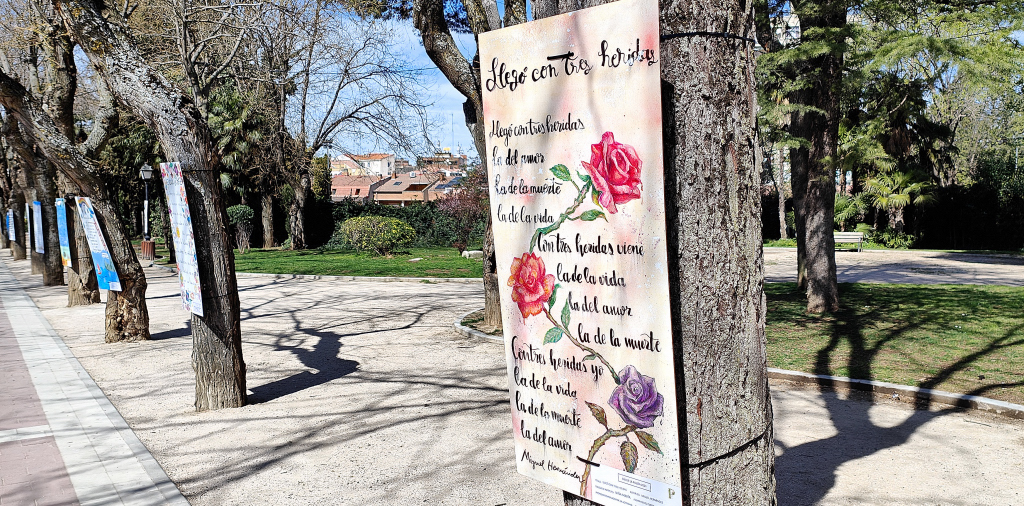 Llegó con tres heridas
Llegó con tres heridas
la del amor
la de la muerte
la de la vida
Con tres heridas viene
la de la vida
la del amor
la de la muerte
Con tres heridas yo
la de la vida
la de la muerte
la del amor
Miguel Hernández